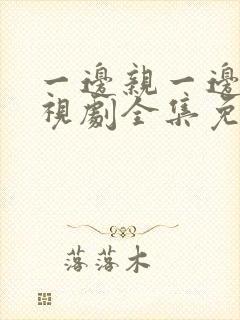 一邊親一邊
視劇全集免
落落木